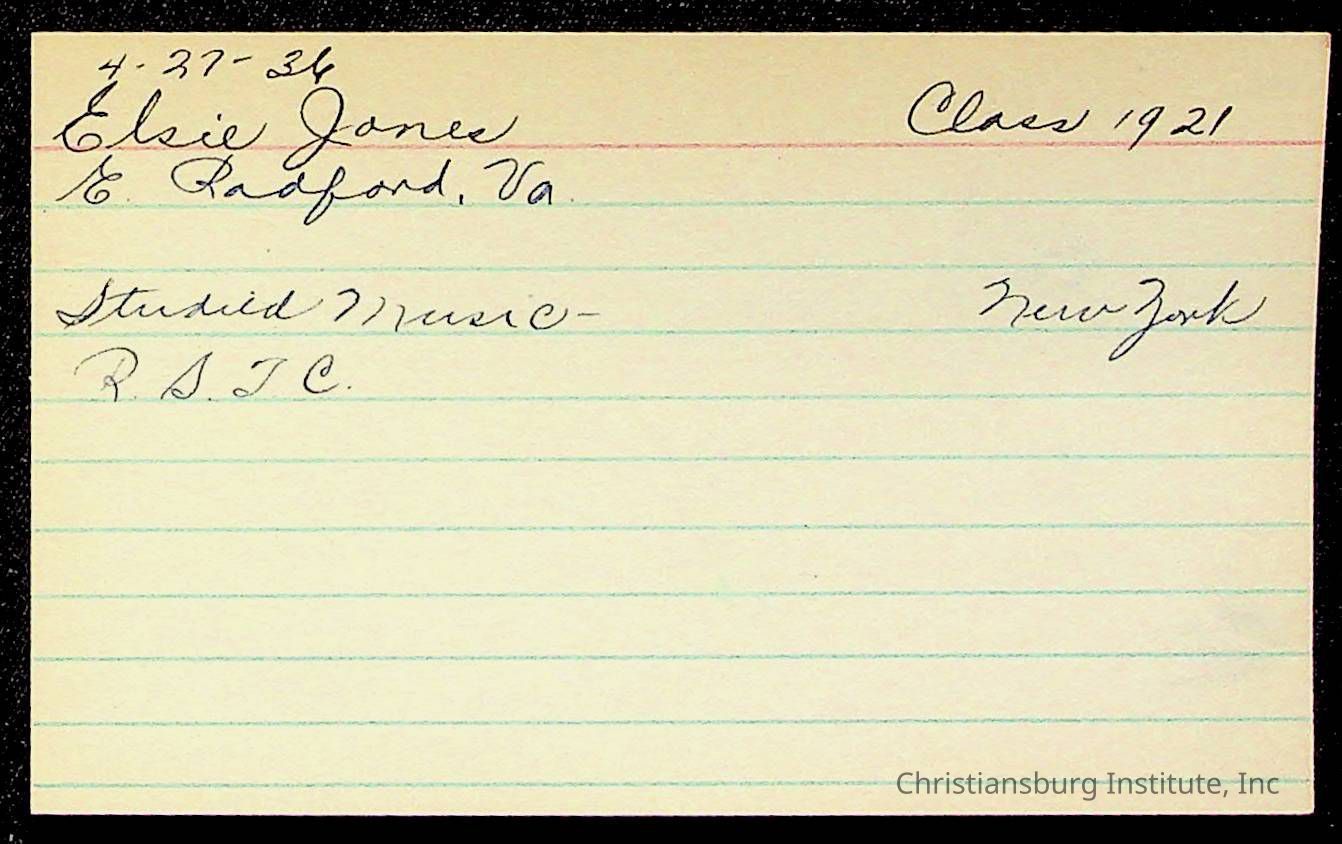 4-27-36
Elsie Jones Class 1921
E. Radford, Va.
Studied Music- New York
R. S. T. C.
Christiansburg Institute, Inc